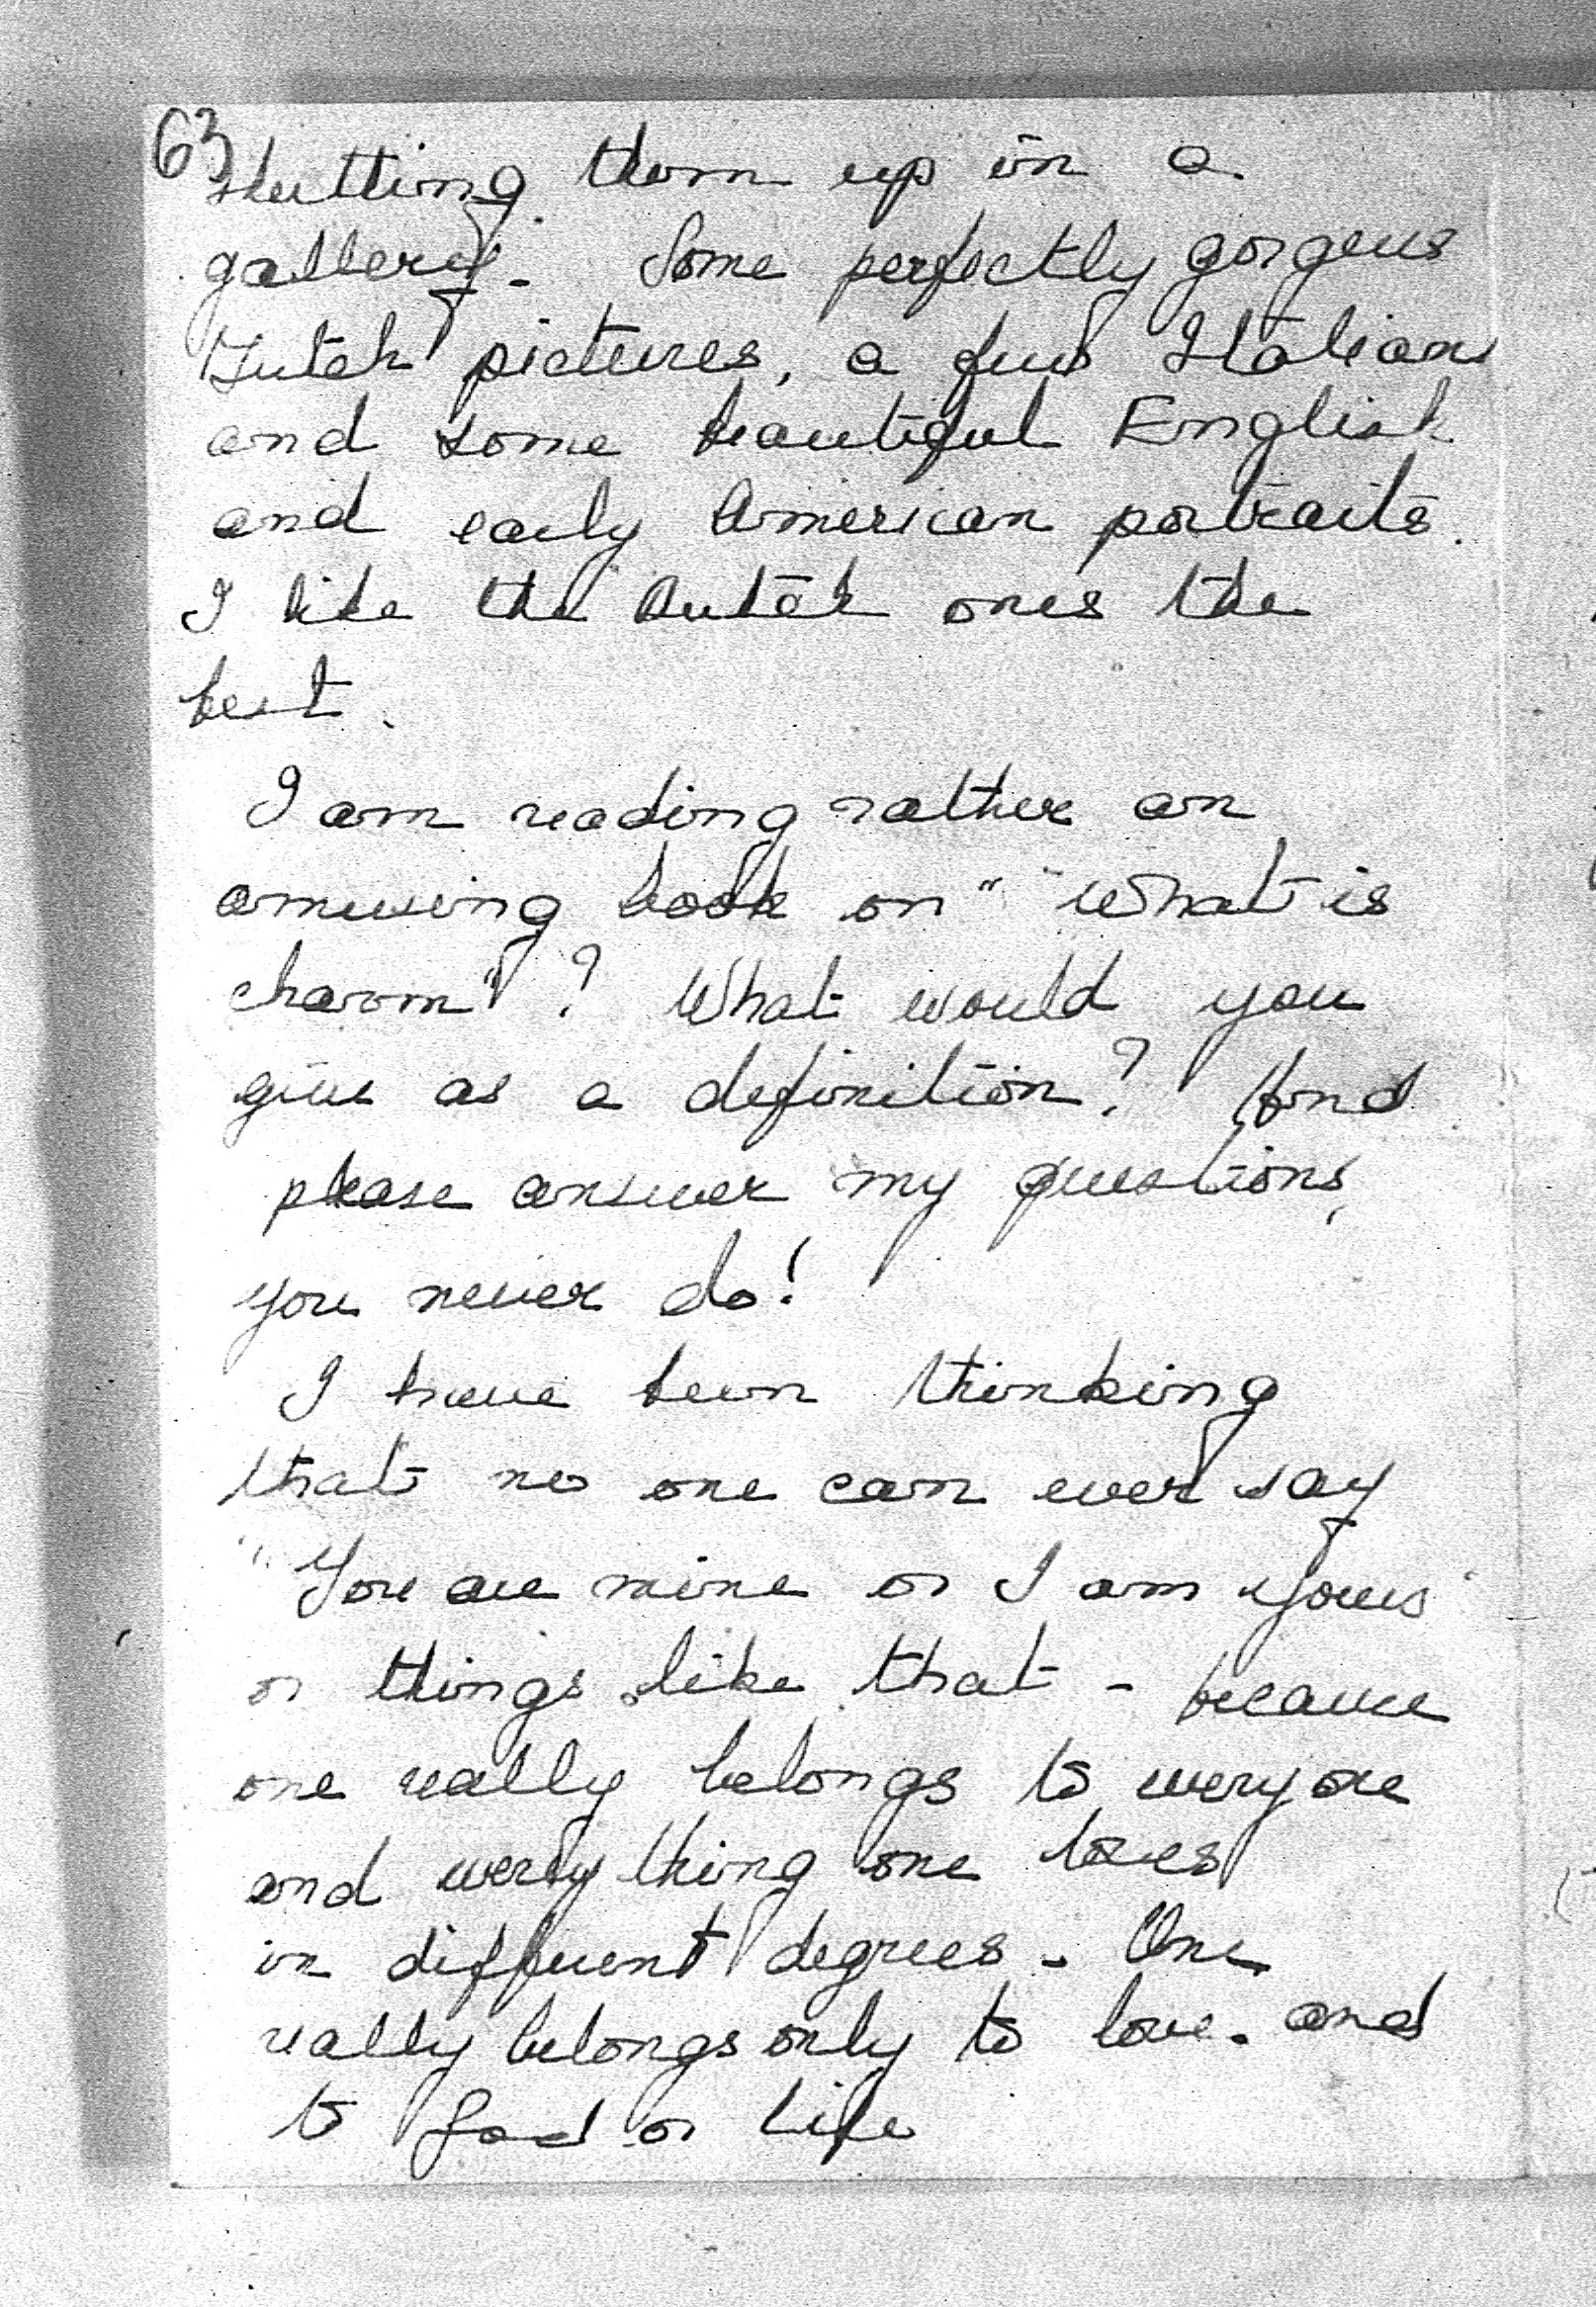 63
shutting them up in a
gallery. Some perfectly gorgeus
Dutch pictures, a few Italian
and some beautiful English
and early American portraits.
I like the Dutch ones the
best.
I am reading rather an
amusing book on "What is
charm"? What would you
give as a definition? And
please answer my questions,
you never do!
I have been thinking
that no one can ever say
"You are mine or I am yours"
or things like that - because
one really belongs to everyone
and everything one loves
in different degrees - One
really belongs only to love. and
to God or Life